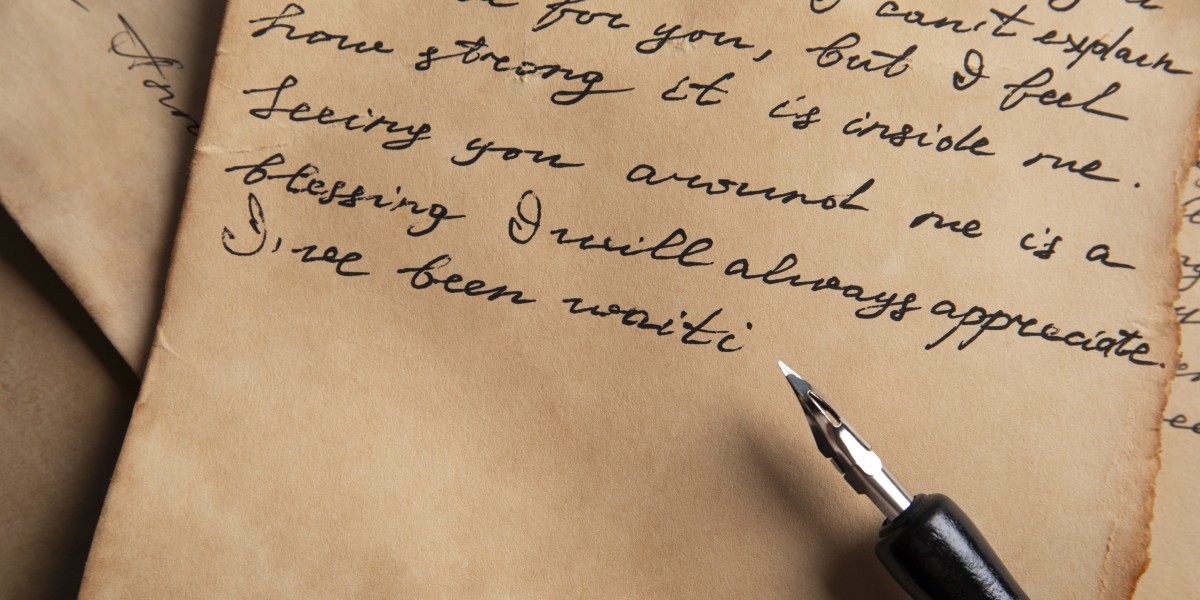 for you, can't explain
how strong it is inside me. but I feel
Seeing you around me is a
blessing I will always appreciate.
I've been waiti